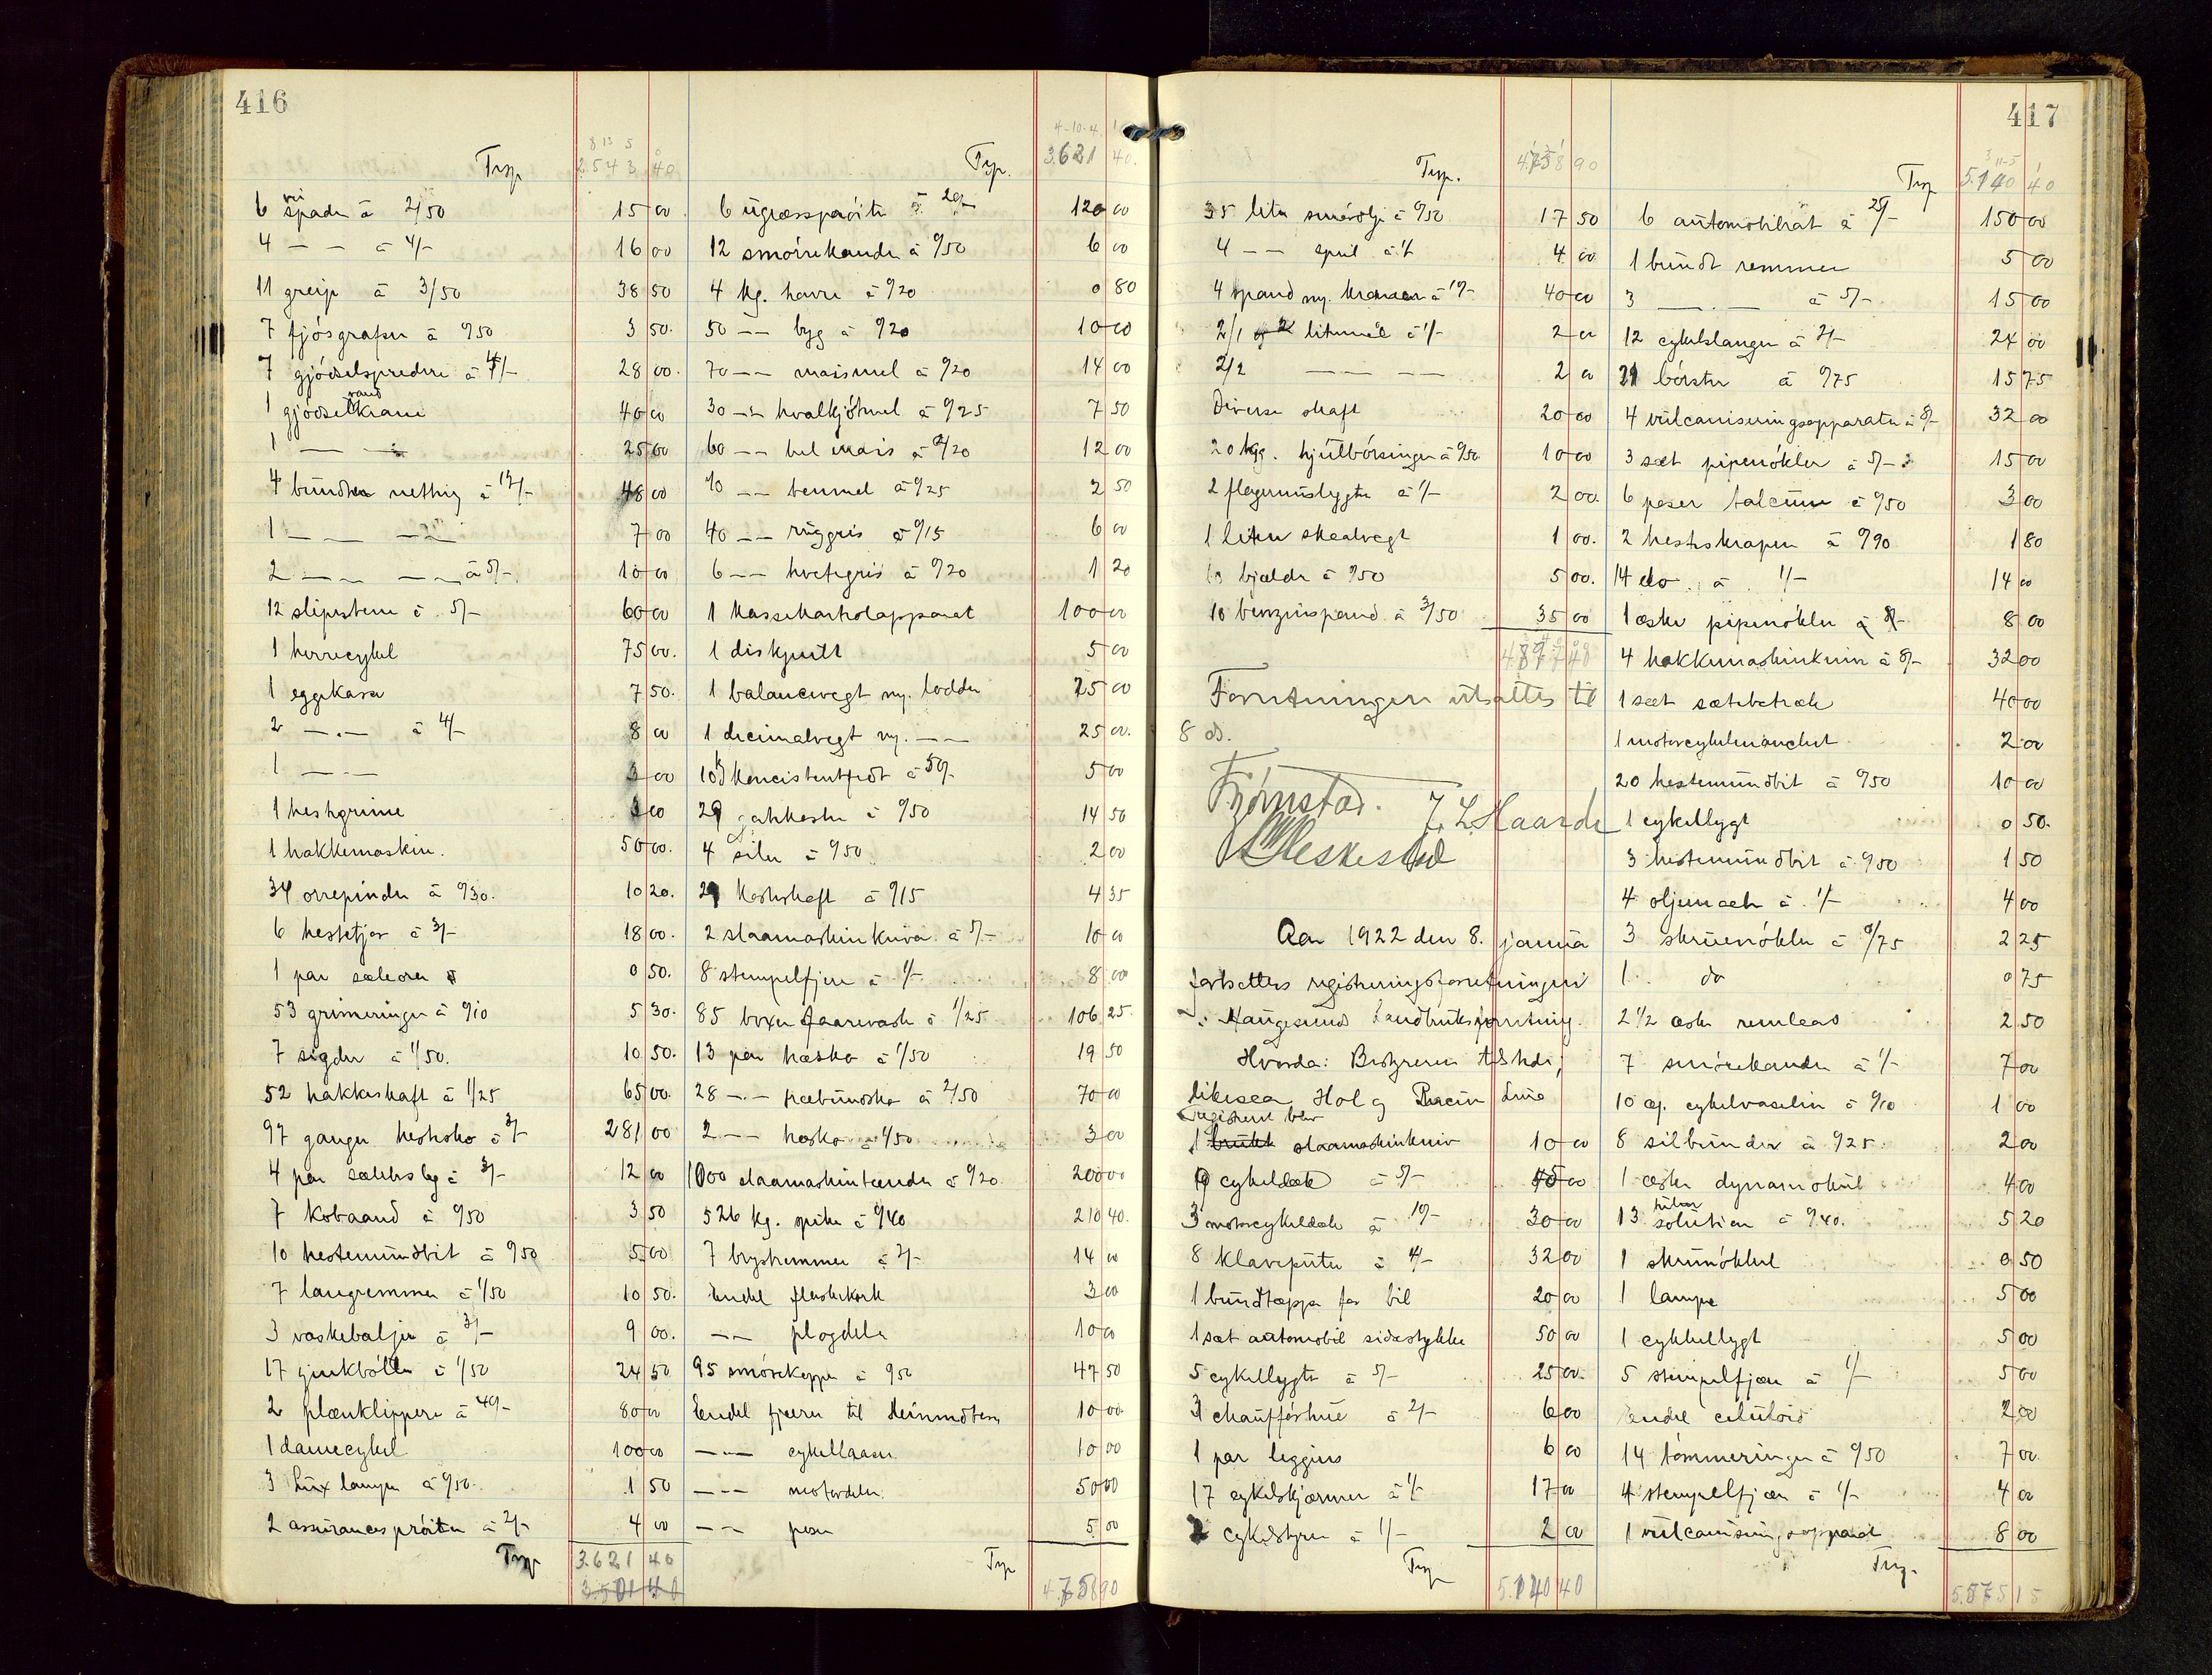 416
Trsp 2.543 40
6 spader à 2/50 15 00
4 — — à 4/- 16 00
11 greip à 3/50 38 50
7 fjósgrafser à 0/50 3 50
7 gjódselspredere à 4/- 28 00
1 gjódselkran 40 00
1 — — 25 00
4 bundter netting à 12/- 48 00
1 — — 7 00
2 — — à 5/- 10 00
12 slipestene à 5/- 60 00
1 herrecykel 75 00
1 eggekasse 7 50
2 — à 4/- 8 00
1 — 3 00
1 hestegrime 3 00
1 hakkemaskin 50 00
34 orrepinder à 0/30 10 20
6 hestetjor à 3/- 18 00
1 par 0 50
53 grimeringer à 0/10 5 30
7 sigder à 1/50 10 50
52 hakkeskaft à 1/25 65 00
97 ganger hestesko à 3/- 281 00
4 par à 3/- 12 00
7 kobaand à 0/50 3 50
10 hestemundbit à 0/50 5 00
7 langremmer à 1/50 10 50
3 vaskebaljer à 3/- 9 00
17 à 1/50 24 50
2 plænklippere à 40/- 80 00
1 damecykel 100 00
3 lux lamper à 0/50 1 50
2 assurancesprøiter à 2/- 4 00
Trsp 3.621 40
3.501 40
Trsp. 3.621 40
6 ugræssprøiter à 20/- 120 00
12 smørekander à 0/50 6 00
4 kg. havre à 0/20 0 80
50 — byg à 0/20 10 00
70 — maismel à 0/20 14 00
30 — hvalkjøtmel à 0/25 7 50
60 — hel mais à 0/20 12 00
10 — benmel à 0/25 2 50
40 — ruggris à 0/15 6 00
6 — hvetegris à 0/20 1 20
1 kassekontrolapparat 100 00
1 diskpult 5 00
1 balancevegt m. lodder 25 00
1 decimalvegt m. — — 25 00
10 k konsistentfedt à 50/- 5 00
29 gatekoster à 0/50 14 50
4 siler à 0/50 2 00
29 kosteskaft à 0/15 4 35
2 slaamaskinkniver à 5/- 10 00
8 stempelfjerer à 1/- 8 00
85 boxer faarevask à 1/25 106 25
13 par hæsko à 1/50 19 50
28 — træbundsko à 2/50 70 00
2 — hæsko à 1/50 3 00
1000 slaamaskintænder à 0/20 200 00
526 kg. spiker à 0/40 210 40
7 brystremmer à 2/- 14 00
Endel flaskekork 3 00
— — plogdeler 10 00
95 smørekopper à 0/50 47 50
Endel fjærer til 10 00
— — cykellaase 10 00
— — motordeler 50 00
— — poser 5 00
Trsp 4.758 90
417
Trsp. 4.758 90
35 liter smøreolje à 0/50 17 50
4 — — à 1/- 4 00
4 spand m. kraner à 10/- 40 00
2/1 litermål à 1/- 2 00
2/2 — — — 2 00
Diverse skaft 20 00
20 kg. hjulbøssinger à 0/50 10 00
2 flagermuslygter à 1/- 2 00
1 liten skaalvegt 1 00
10 bjælder à 0/50 5 00
10 benzinspand à 3/50 35 00
4877 48
Forretningen utsattes til
8 ds.
Fjømstad. T. L. Haarde
Heskestad
Aar 1922 den 8. januar
fortsattes registreringsforretningen
i Haugesunds Landbruksforretning.
Hvorda: Bestyreren tilstede,
likesaa Holg
registrert blev
1 brukt slaamaskinkniv 10 00
9 cykeldæk à 5/- 45 00
3 motorcykeldæk à 10/- 30 00
8 klaveputer à 4/- 32 00
1 bundteppe for bil 20 00
1 sæt automobil sidestykke 50 00
5 cykellygter à 5/- 25 00
3 chaufførhue à 2/- 6 00
1 par leggins 6 00
17 cykelskjærmer à 1/- 17 00
2 cykelstyrer à 1/- 2 00
Trsp 5.140 40
Trsp 5.140 40
6 automobilrat à 25/- 150 00
1 bundt remmer 5 00
3 — à 5/- 15 00
12 cykelslanger à 2/- 24 00
21 børster à 0/75 15 75
4 vulcaniseringsapparater à 8/- 32 00
3 sæt pipenøkler à 5/- 15 00
6 poser talcum à 0/50 3 00
2 hesteskraper à 0/90 1 80
14 do. à 1/- 14 00
1 æske pipenøkler à 8/- 8 00
4 hakkemaskinkniver à 8/- 32 00
1 sæt sætebetræk 40 00
1 motorcykelmanchet 2 00
20 hestemundbit à 0/50 10 00
1 cykellygt 0 50
3 hestemundbit à 0/50 1 50
4 à 1/- 4 00
3 skruenøkler à 0/75 2 25
1 do 0 75
2 1/2 æske remlaas 2 50
7 smørekander à 1/- 7 00
10 æs. cykelvaselin à 0/10 1 00
8 silbunder à 0/25 2 00
1 æske dynamokul 4 00
13 tuber solution à 0/40 5 20
1 skrunøkkel 0 50
1 lampe 5 00
1 cykkellygt 5 00
5 stempelfjærer à 1/- 5 00
Endel celuloid 2 00
14 tømmeringer à 0/50 7 00
4 stempelfjær à 1/- 4 00
1 vulcaniseringsapparat 8 00
Trsp. 5.575 15